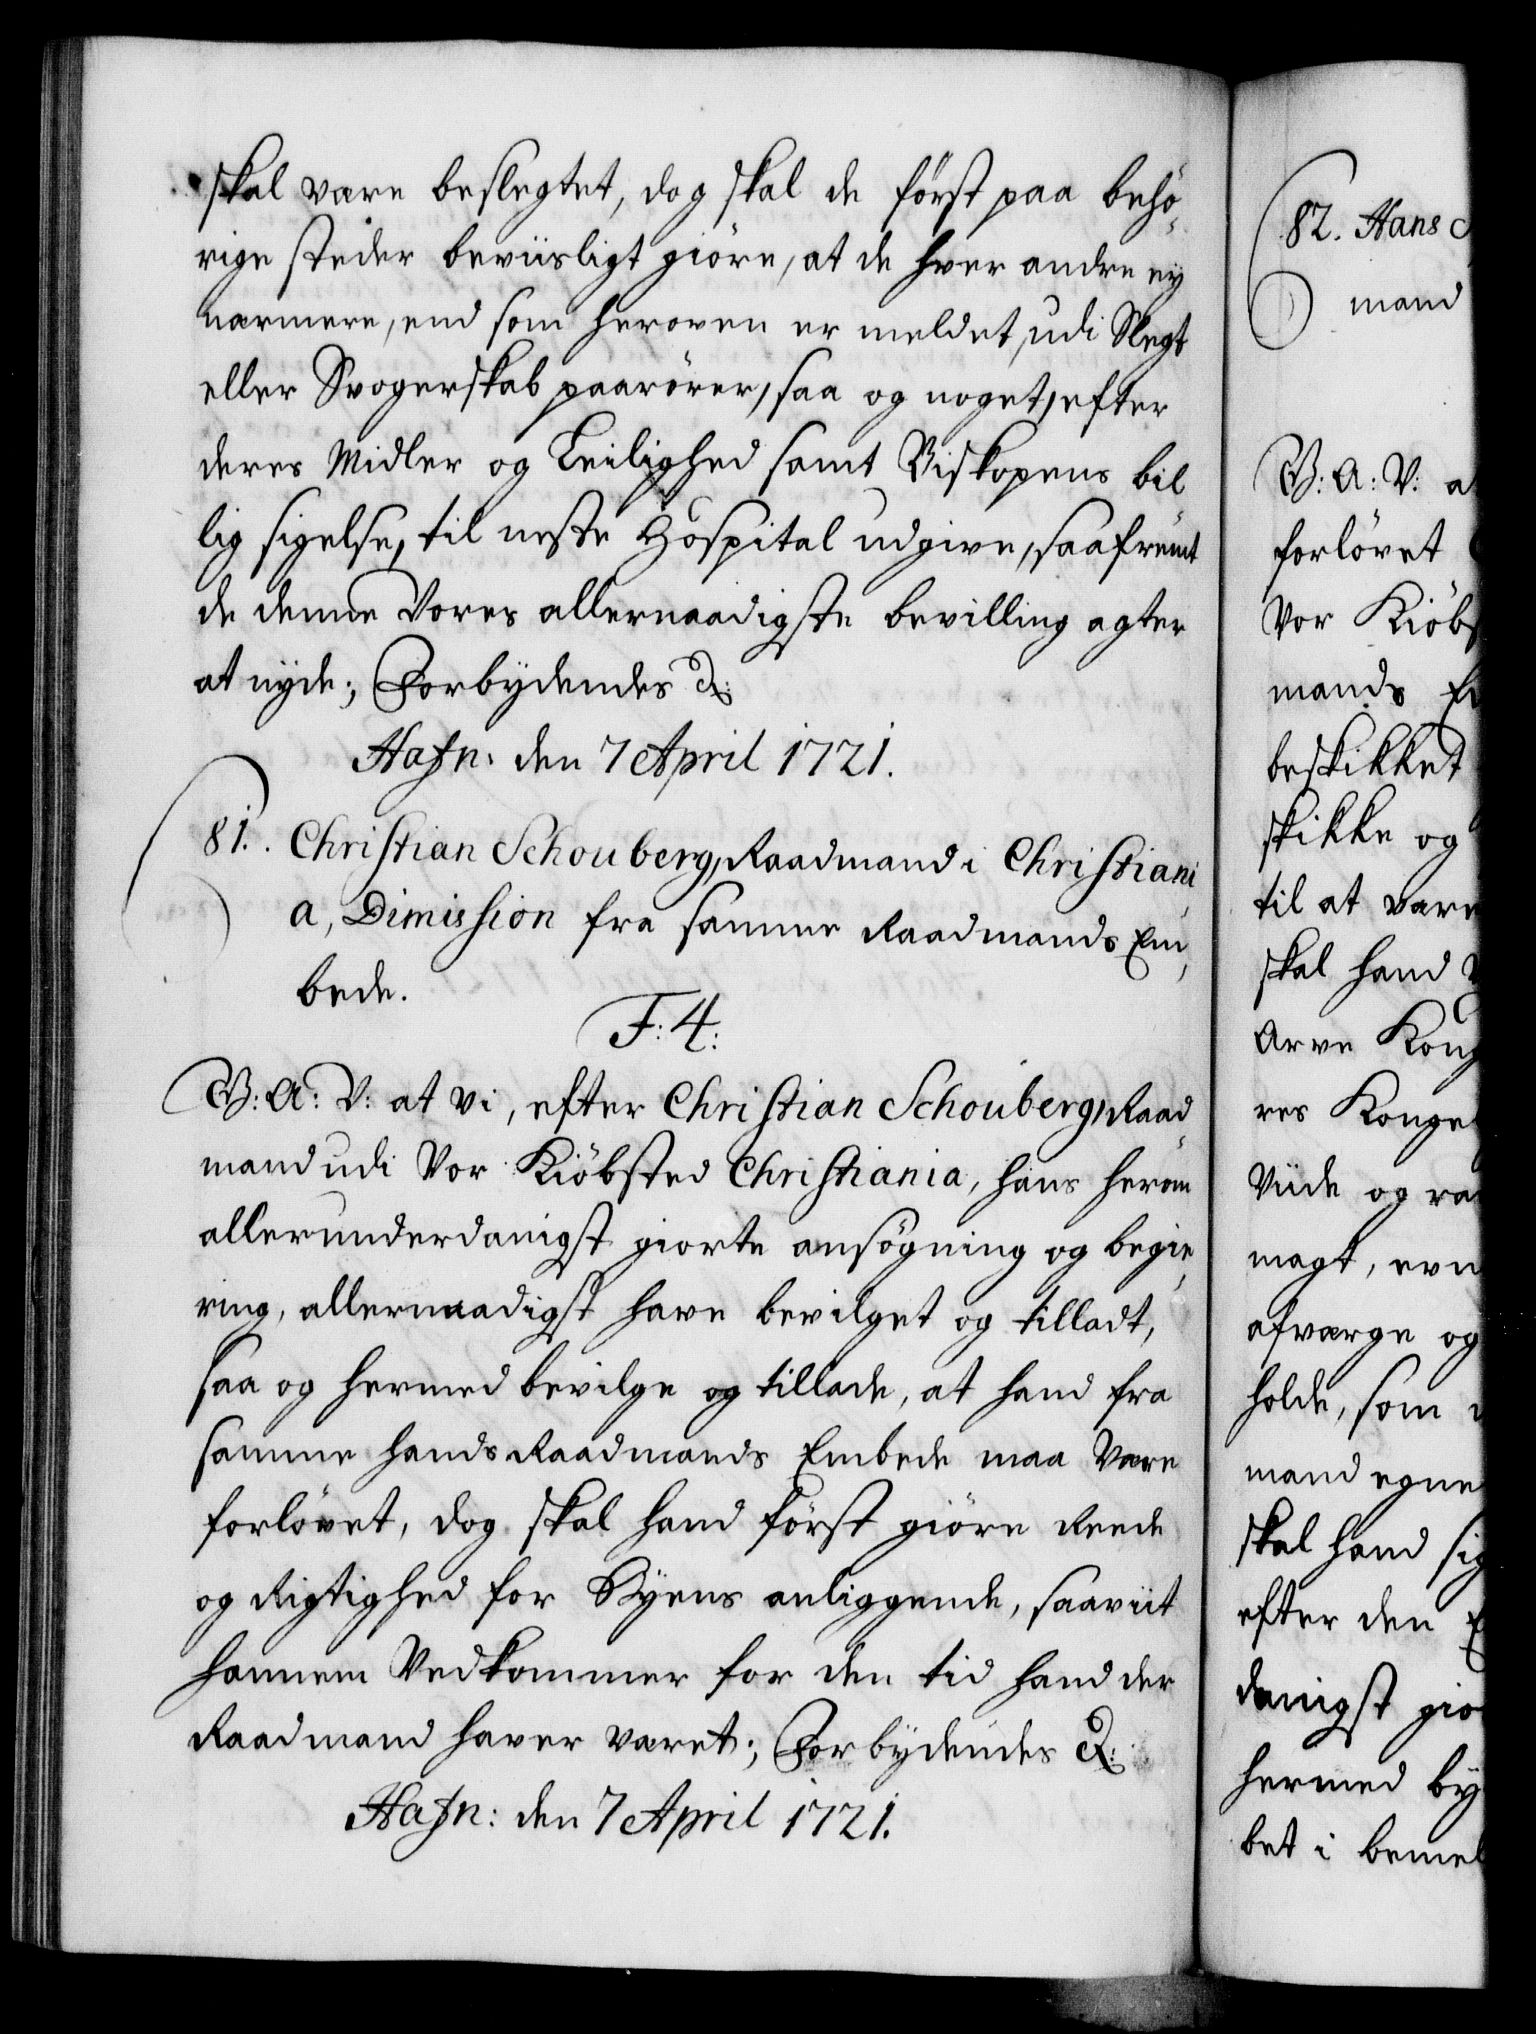 skal være beslegtet, dog skal de först paa behö-
rige steder beviisligt giöre, at de hver andre ey
nærmere, end som heroven er meldet, udi Slegt
eller Svogerskab paarörer, saa og noget, efter
deres Midler og Leilighed samt Biskopens bil
lig sigelse, til neste Hospital udgive, saafremt
de denne Vores allernaadigste bevilling agter
at nyde; Forbydendes &:
Hafn: den 7 April 1721.
81. Christian Schouberg, Raadmand i Christiani
a, Dimission fra samme Raadmands Em-
bede.
F: 4:
V: A: V: at vi, efter Christian Schouberg, Raad
mand udi Vor Kiöbsted Christiania, hans herom
allerunderdanigst giorte ansögning og begie-
ring, allernaadigst have bevilget og tilladt,
saa og hermed bevilge og tillade, at hand fra
samme hands Raadmands Embede maa være
forlövet, dog skal hand först giöre Reede
og Rigtighed for Byens anliggende, saaviit
hannem Vedkommer for den tid hand der
Raadmand haver været; Forbydendes &:
Hafn: den 7 April 1721.
82. Hans
mand
V: A: V: a
forlövet
Vor Kiöbs
mands Em
beskikket
skikke og
til at være
skal hand
Arve Kong
res Konge
Viide og ra
magt, evn
afværge og
holde, som
mand egne
skal hand sig
efter den E
danigst gio
hermed by
bet i bemel